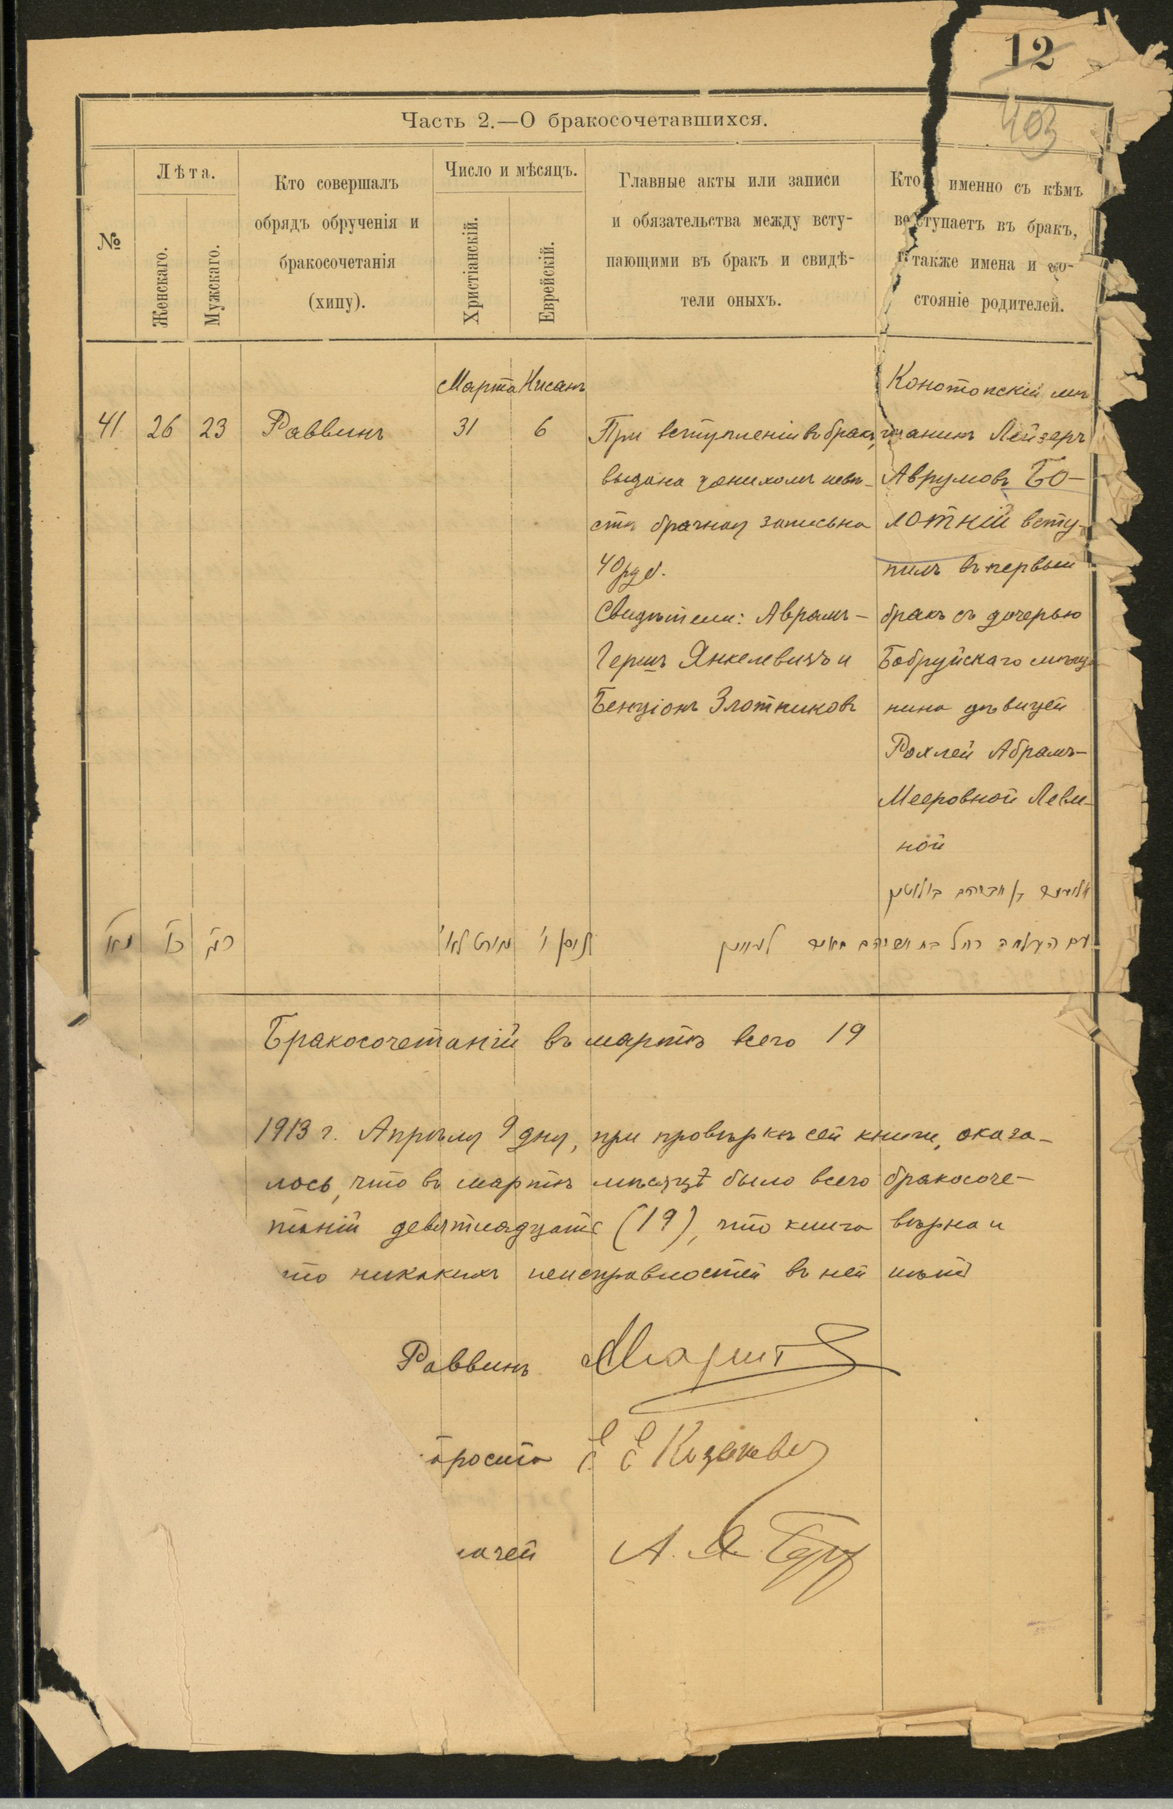 12
403
Часть 2.—О бракосочетавшихся.
№
Лѣта.
Женскаго.
Мужскаго.
Кто совершалъ
обрядъ обрученія и
бракосочетанія
(хипу).
Число и мѣсяцъ.
Христіанскій.
Еврейскій.
Главные акты или записи
и обязательства между всту-
пающими въ бракъ и свидѣ-
тели оныхъ.
Кто именно съ кѣмъ
вступаетъ въ бракъ,
также имена и со-
стояніе родителей.
Марта Нисанъ
41 26 23 Раввинъ 31 6
При вступленіи въ бракъ
выдана женихомъ невѣ-
стѣ брачная запись на
40 руб.
Свидѣтели: Аврамъ-
Гершъ Янкелевичъ и
Бенціонъ Злотниковъ
Конотопскій мѣ-
щанинъ Лейзеръ
Аврумовъ БО-
ЛОТНІЙ всту-
пилъ въ первый
бракъ съ дочерью
Бобруйскаго мѣща-
нина дѣвицей
Рохлей Абрамъ-
Мееровной Леви-
ной
Бракосочетаній въ мартѣ всего 19
1913 г. Апрѣля 9 дня, при провѣркѣ сей книги, оказа-
лось, что въ мартѣ мѣсяцѣ было всего бракосоче-
таній девятнадцать (19), что книга вѣрна и
что никакихъ неисправностей въ ней нѣтъ
Раввинъ